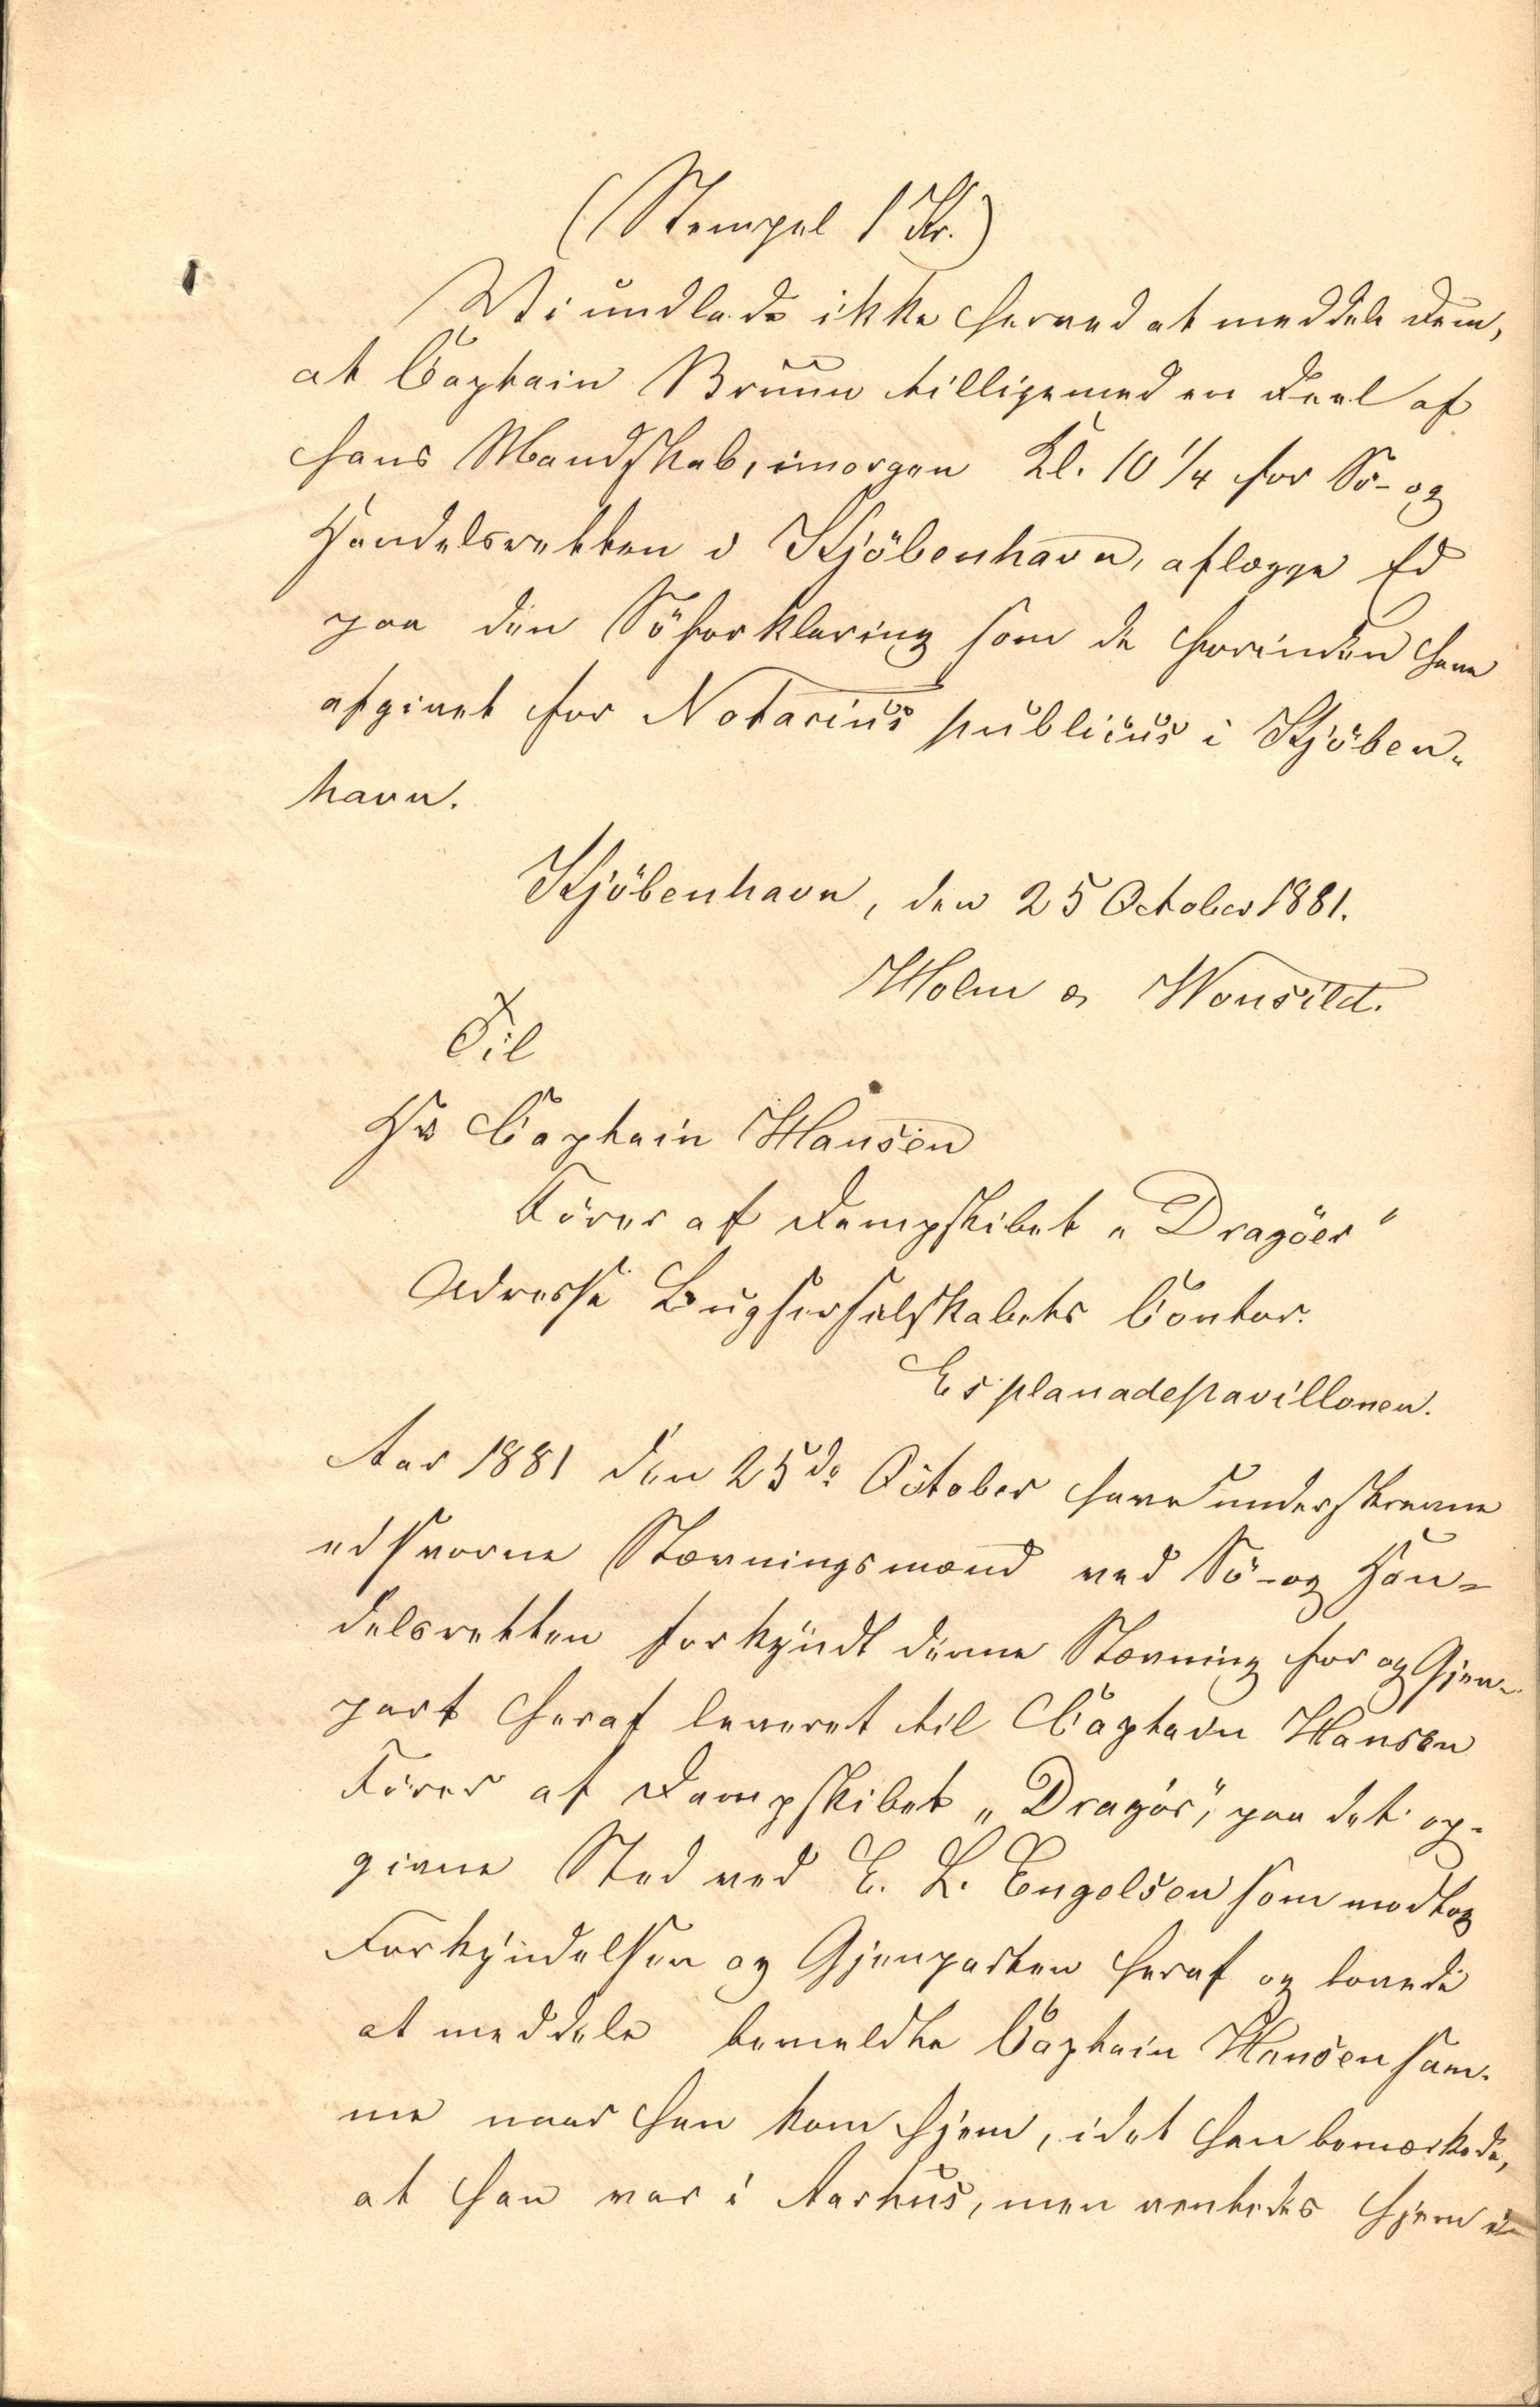 (Stempel 1 Kr.)
Vi undlade ikke herved at meddele Dem,
at Captain Bruun tilligemed en Deel af
hans Mandskab, imorgen Kl. 10 1/4 for Sö- og
Handelsretten i Kjöbenhavn, aflægge Ed
paa den Söforklaring som de forinden have
afgivet for Notarius publicus i Kjöben-
havn.
Kjöbenhavn, den 25 October 1881.
Holm & Wonsild.
Til
Hr Captain Hansen
Förer af Dampskibet „Dragöer"
Adresse Bugserselskabets Contor.
Esplanadepavillonen.
Aar 1881 den 25de October have underskrevne
edsvorne Stævningsmænd ved Sö- og Han-
delsretten forkyndt denne Stævning for og Gjen-
part heraf leveret til Captain Hansen
Förer af Dampskibet „Dragör", paa det op-
givne Sted ved E. L. Engelsen som modtog
Forkyndelsen og Gjenparten heraf og lovede
at meddele bemeldte Captain Hansen sam-
me naar han kom hjem, idet han bemærkede,
at han var i Aarhus, men ventedes hjem i